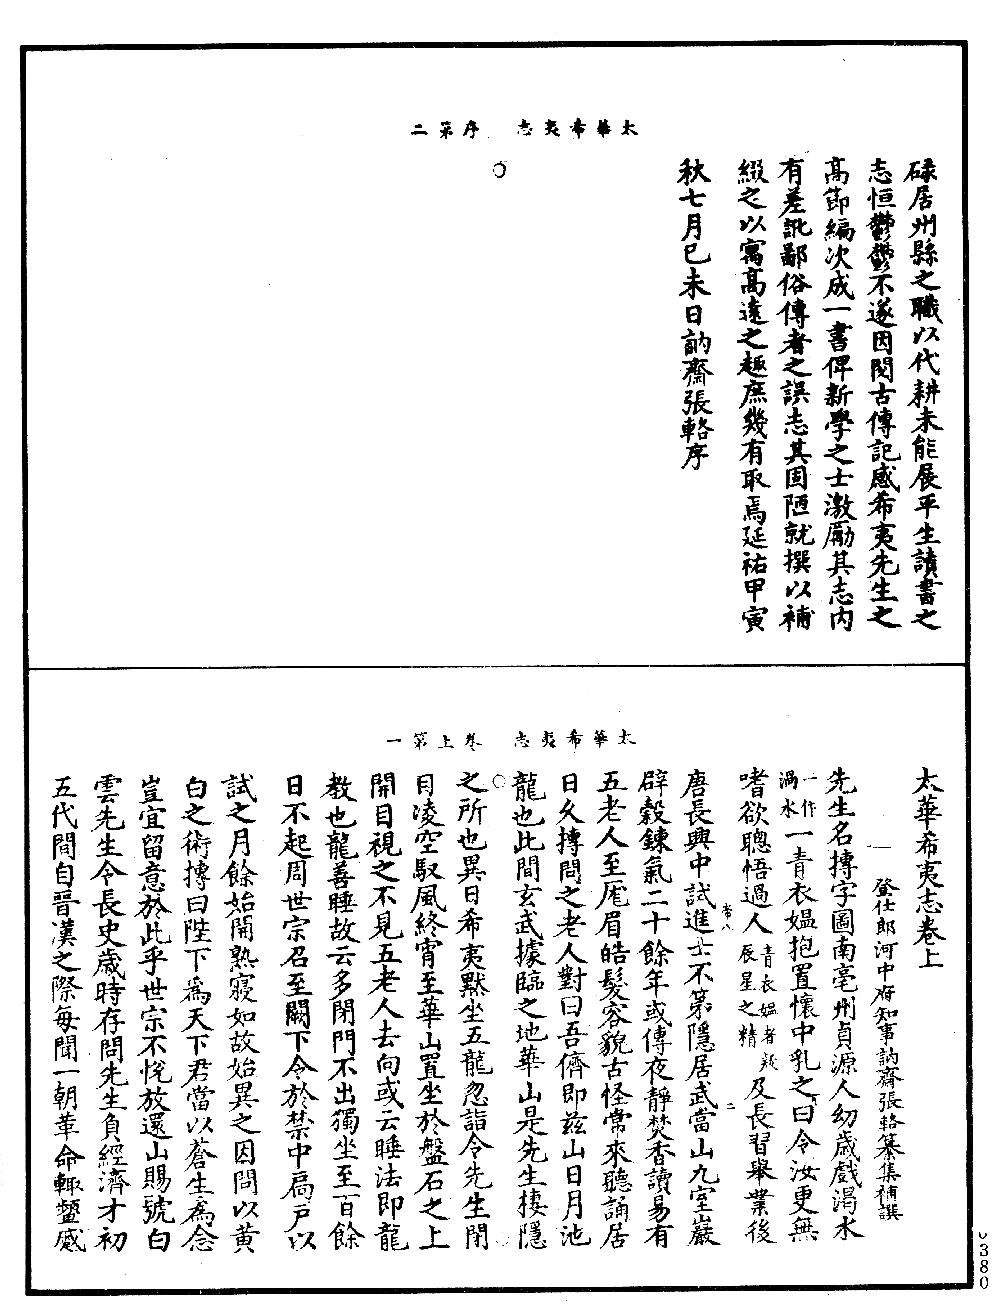 太華希夷志　序第二
碌居州縣之職以代耕未能展平生讀書之
志恒鬱鬱不遂因閱古傳記感希夷先生之
高節編次成一書俾新學之士激勵其志內
有差訛鄙俗傳者之誤志其固陋就撰以補
綴之以寓高遠之趣庶幾有取焉延祐甲寅
秋七月己未日訥齋張輅序
太華希夷志　卷上第一
太華希夷志卷上
登仕郎河中府知事訥齋張輅纂集補撰
先生名摶字圖南亳州真源人幼歲戲渴水
一作渦水一青衣媼抱置懷中乳之曰令汝更無
嗜欲聰悟過人青衣媼者歘辰星之精及長習舉業後
唐長興中試進士不第隱居武當山九室巖
辟穀鍊氣二十餘年或傳夜靜焚香讀易有
五老人至厖眉皓髮容貌古怪常來聽誦居
日久摶問之老人對曰吾儕即茲山日月池
龍也此間玄武據臨之地華山是先生棲隱
之所也異日希夷默坐五龍忽詣令先生閉
目凌空馭風終宵至華山置坐於盤石之上
開目視之不見五老人去向或云睡法即龍
教也龍善睡故云多閉門不出獨坐至百餘
日不起周世宗召至闕下令於禁中扃戶以
試之月餘始開熟寢如故始異之因問以黃
白之術摶曰陛下為天下君當以蒼生為念
豈宜留意於此乎世宗不悅放還山賜號白
雲先生令長史歲時存問先生負經濟才初
五代間自晉漢之際每聞一朝革命輒顰感
0380